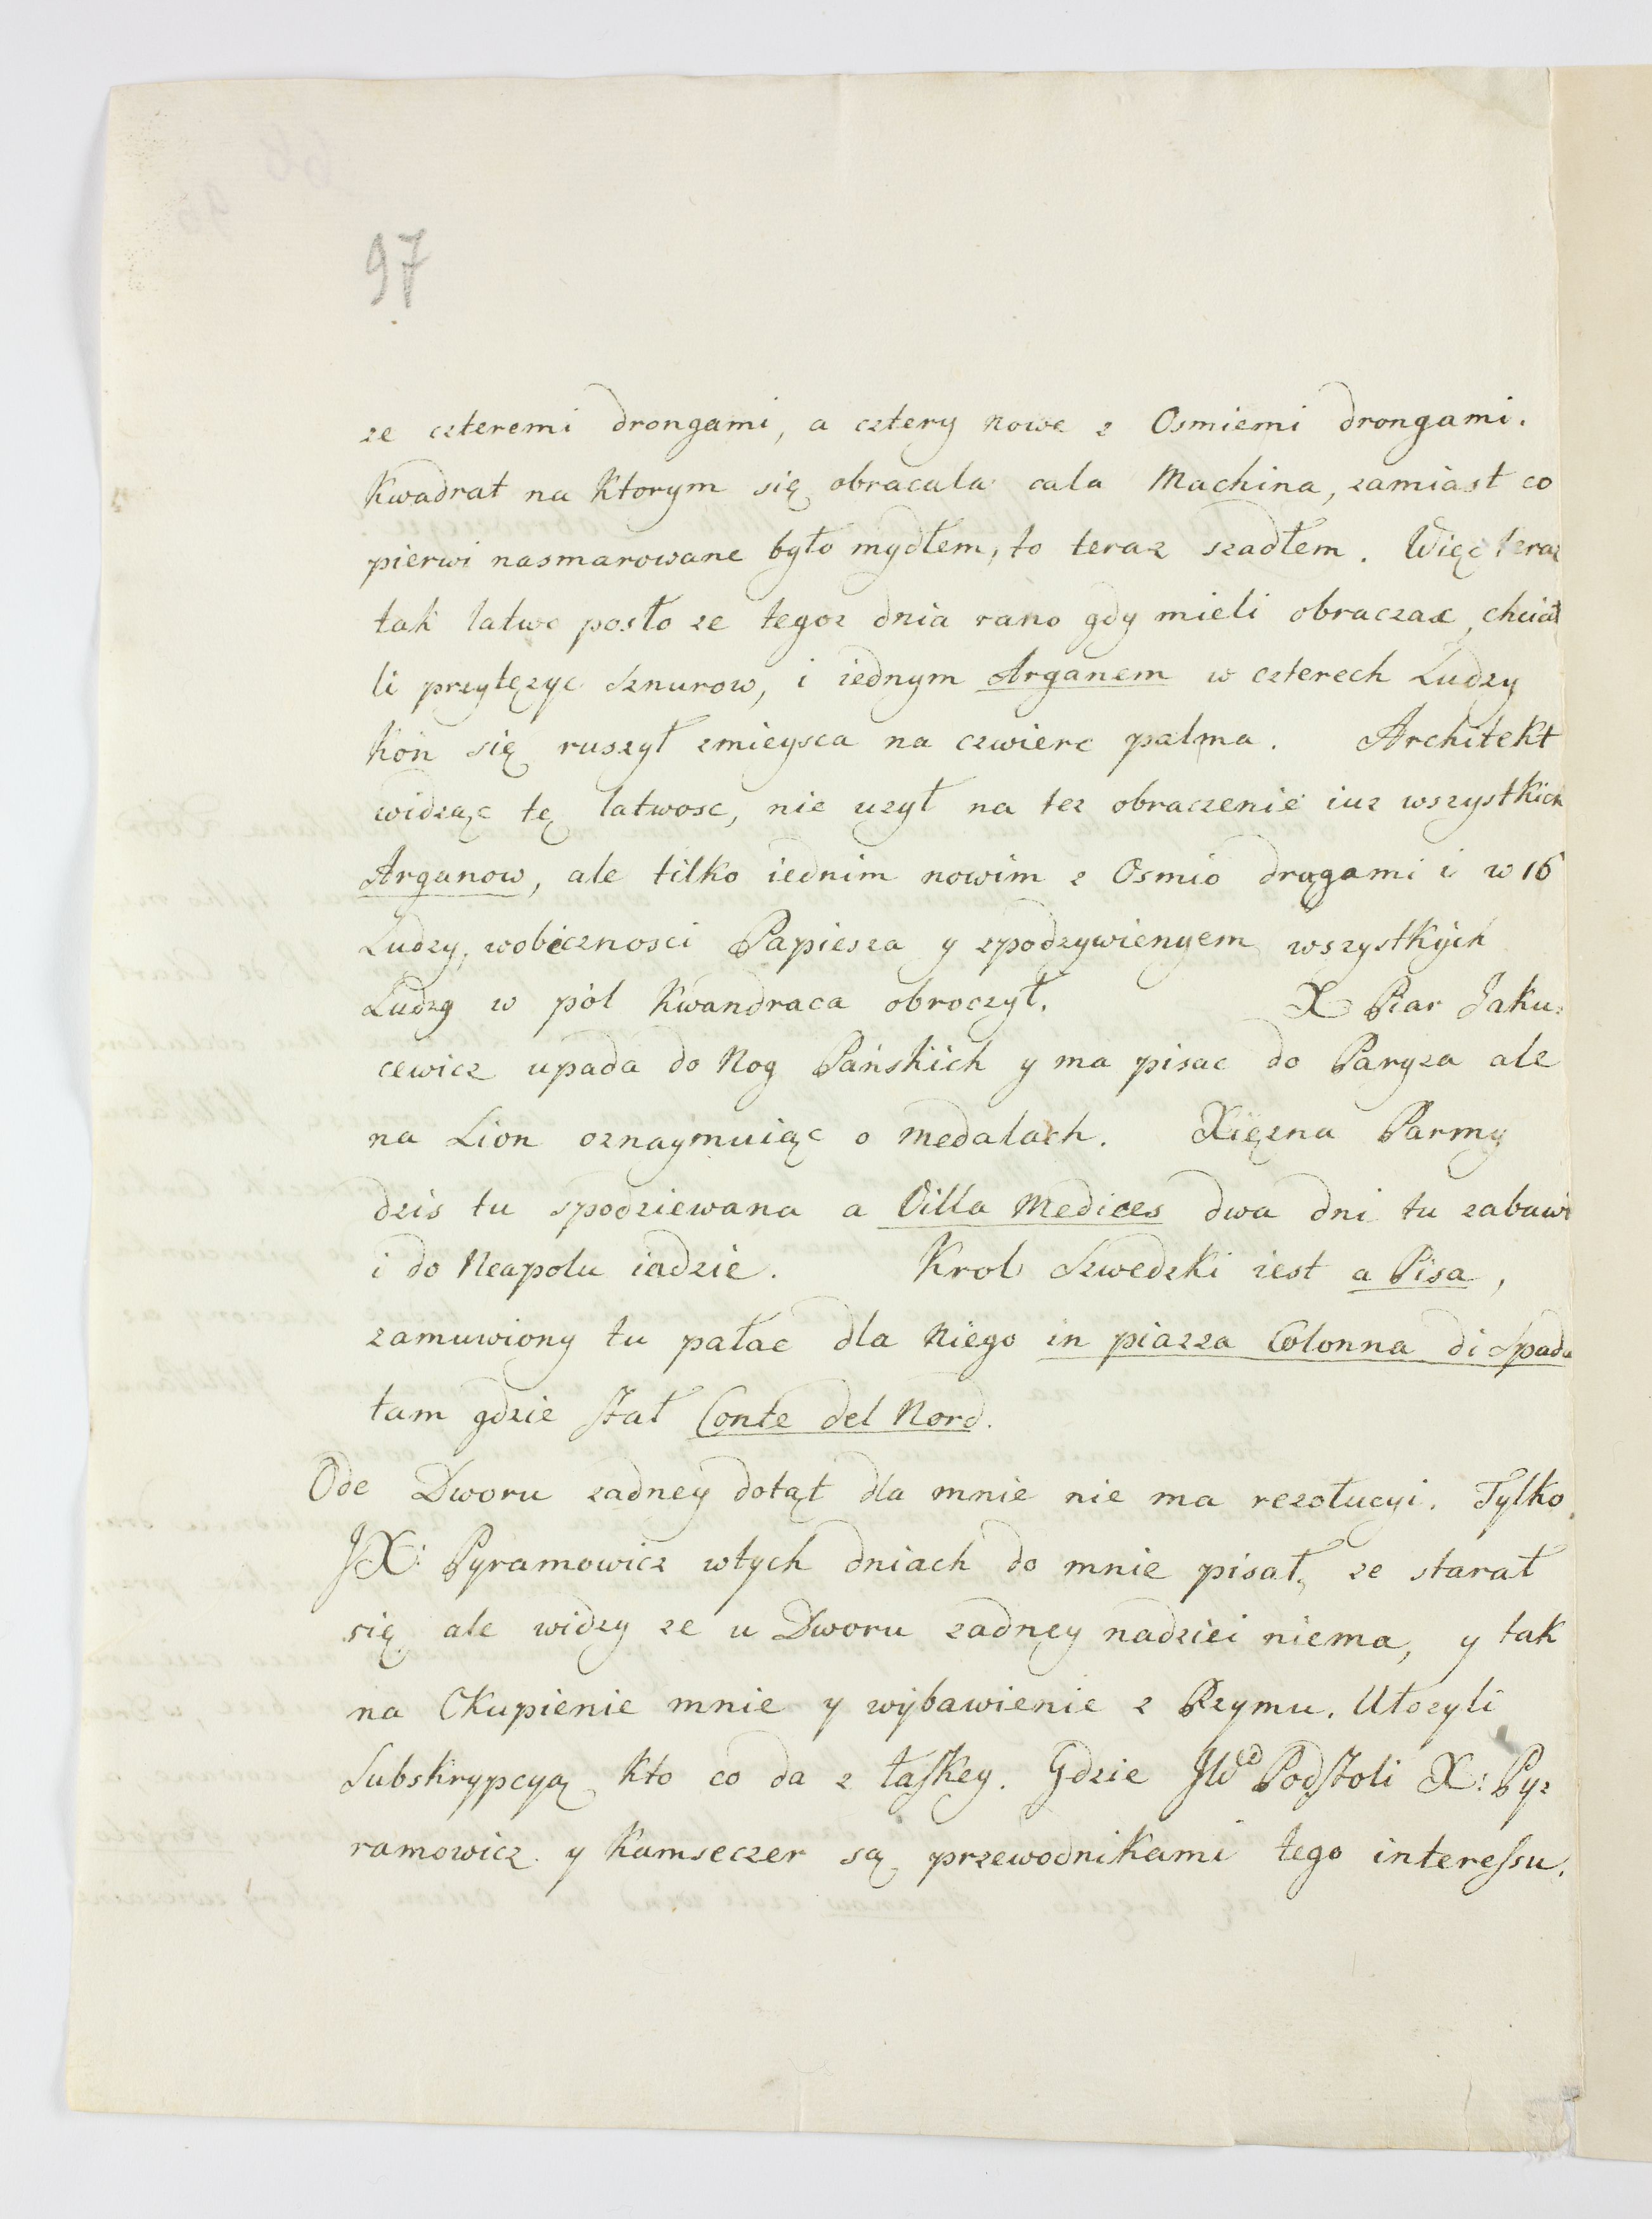 97
ze czteremi drongami, a cztery nowe z Osmiemi drongami.
Kwadrat na Ktorym się obracala cala Machina, zamiast co
pierwi nasmarowane było mydłem, to teraz szadłem. Więc teraz
tak latwo posło ze tegoz dnia rano gdy mieli obraczac, chcia
li przytęzyc Sznurow, i iednym Arganem w czterech Ludzy
Koń się ruszył zmieysca na czwierc palma. Architekt
widząc tę latwosc, nie uzył na tez obraczenie iuz wszystkich
Arganow, ale tilko iednim nowim z Osmio drągami i w 16
Ludzy, wobecznosci Papiesza y zpodzywienyem wszystkych
Ludzy w pòl Kwandraca obroczył. X Piar Jaku:
cewicz upada do Nog Pańskich y ma pisac do Paryza ale
na Lion oznaymuiąc o medalach. Xięzna Parmy
dzis tu spodziewana a Villa Medices dwa dni tu zabawi
i do Neapolu iadzie. Krol Szwedzki iest a Pisa,
zamuwiony tu pałac dla Niego in piazza Colonna di Spada
tam gdzie stał Conte del Nord.
Ode Dworu zadney dotąt dla mnie nie ma rezołucyi. Tylko
JX: Pyramowicz wtych dniach do mnie pisał, ze starał
się ale widzy ze u Dworu zadnęy nadziei niema, y tak
na Okupienie mnie y wybawienie z Rzymu. Ułozyli
Subskrypcyą kto co da z łaskey. Gdzie JWD Podstoli X: Py:
ramowicz y Kamseczer są przewodnikami tego interessu.